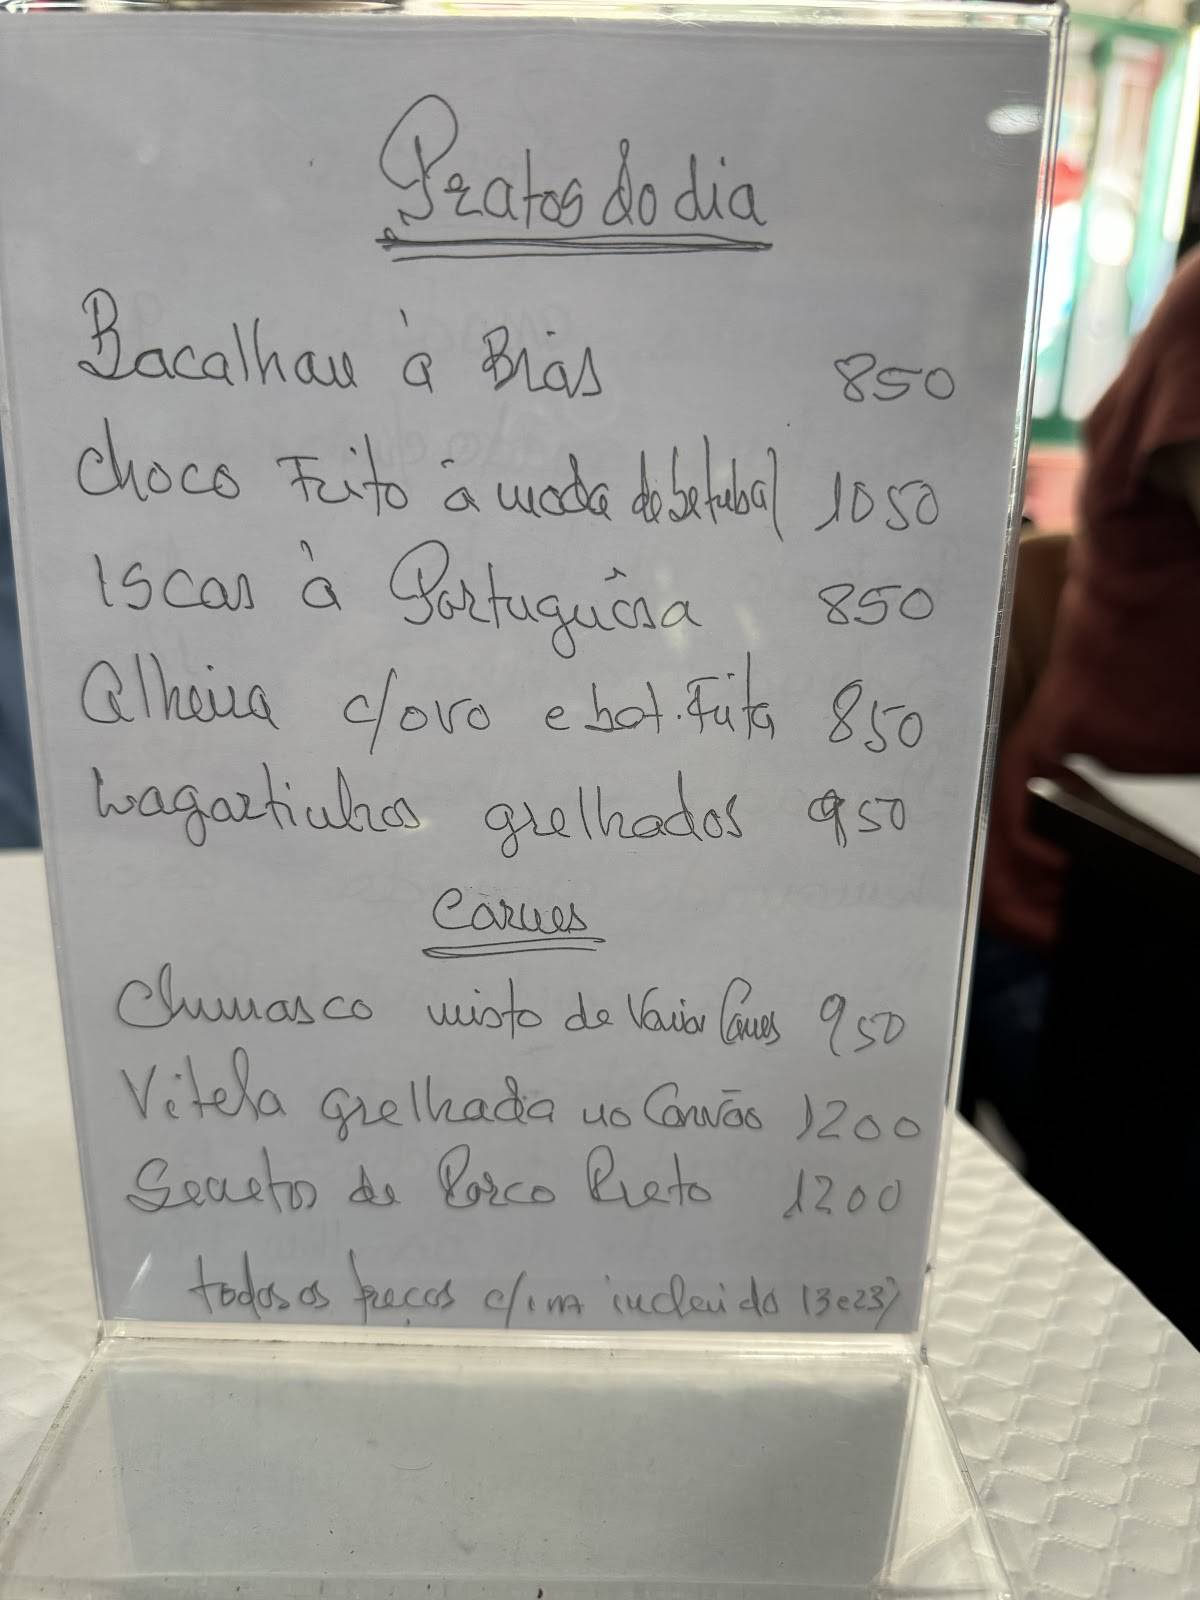 Pratos do dia
Bacalhau à Brás 850
Choco Frito à moda de Setubal 1050
Iscas à Portuguêsa 850
Alheira c/ovo e bat. Frita 850
Lagartinhos grelhados 950
Carnes
Churrasco misto de Varias Carnes 950
Vitela grelhada no Carvão 1200
Secretos de Porco Preto 1200
todos os preços c/iva incluido 13e23%